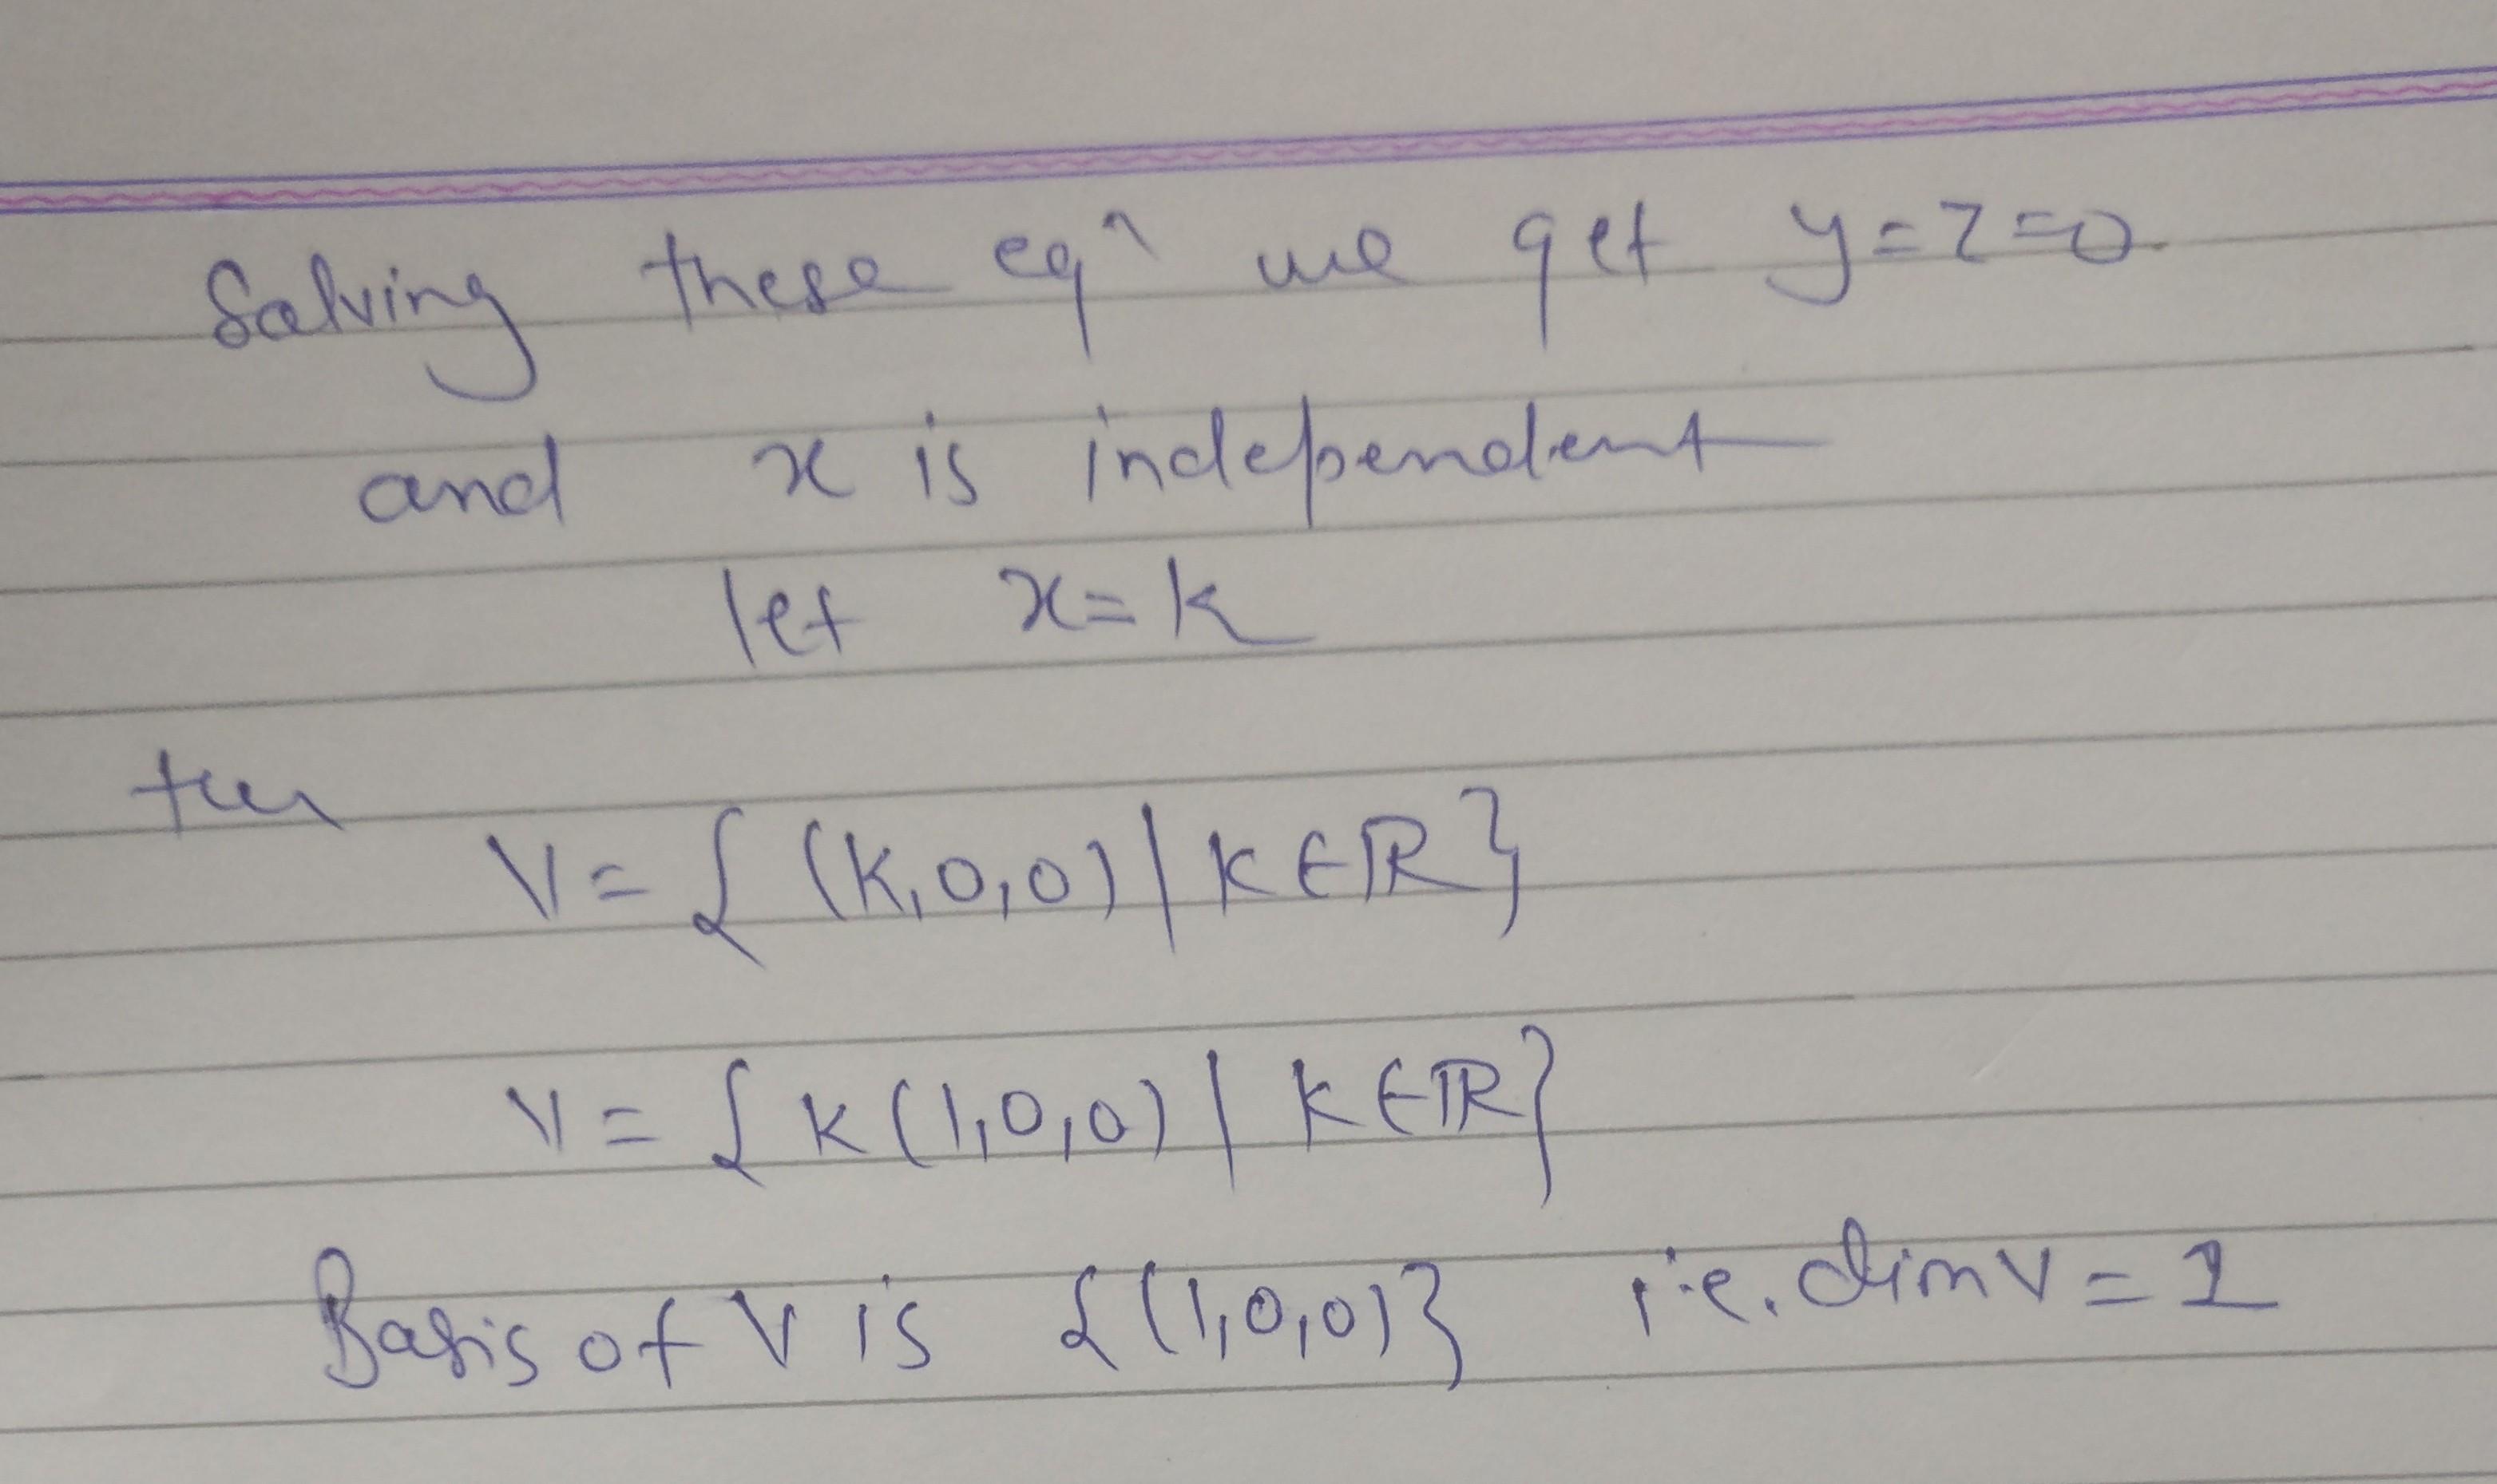 Solving these eqn we get y=z=0.
and x is independent
let x=k
then
V = { (k,0,0) | k ∈ ℝ }
V = { k(1,0,0) | k ∈ ℝ }
Basis of V is {(1,0,0)} i.e. dim V = 1